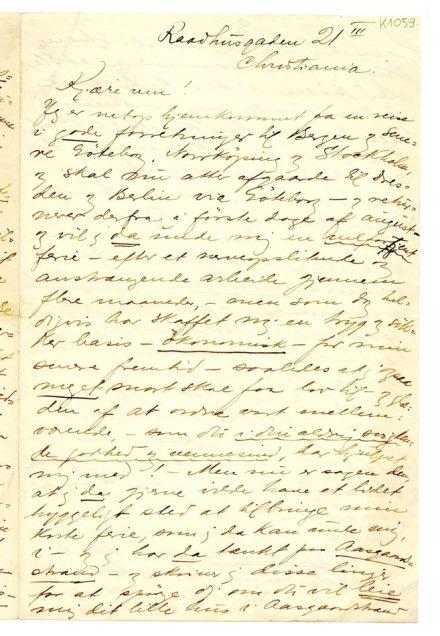 K1059
Raadhusgaden 21 III
Christiania.
Kjære ven!
Jeg er netop hjemkommet fra en reise
i gode forretninger til Bergen og sene-
re Göteborg, Norrköping og Stockholm,
og skal nu atter afgaarde til Dres-
den og Berlin via Göteborg – og retur-
nerer derfra i første dage af august
og vil j da unde mig en
ferie – efter et nervepslidende og
anstrængende arbeide gjennem
flere maaneder, – men som dog hel-
digvis har skaffet mig en tryg og sik-
ker basis – økonomisk – for min
senere fremtid – saaledes at j
meget snart skal faa lov til og glæ-
den af at ordne vort mellem-
værende, – som du i din aldrig
de godhed og vennesind, har hjulpet
mig med! – Men nu er sagen den,
at j da gjerne vilde have et lidet
hyggeligt sted at tilbringe min
korte ferie, som j da kan unde mig,
i – og j har da tænkt paa Aasgaard-
strand – og skriver j disse linjer
for at spørge dig om du vil leie
mig dit lille hus i Aasgaardstrand